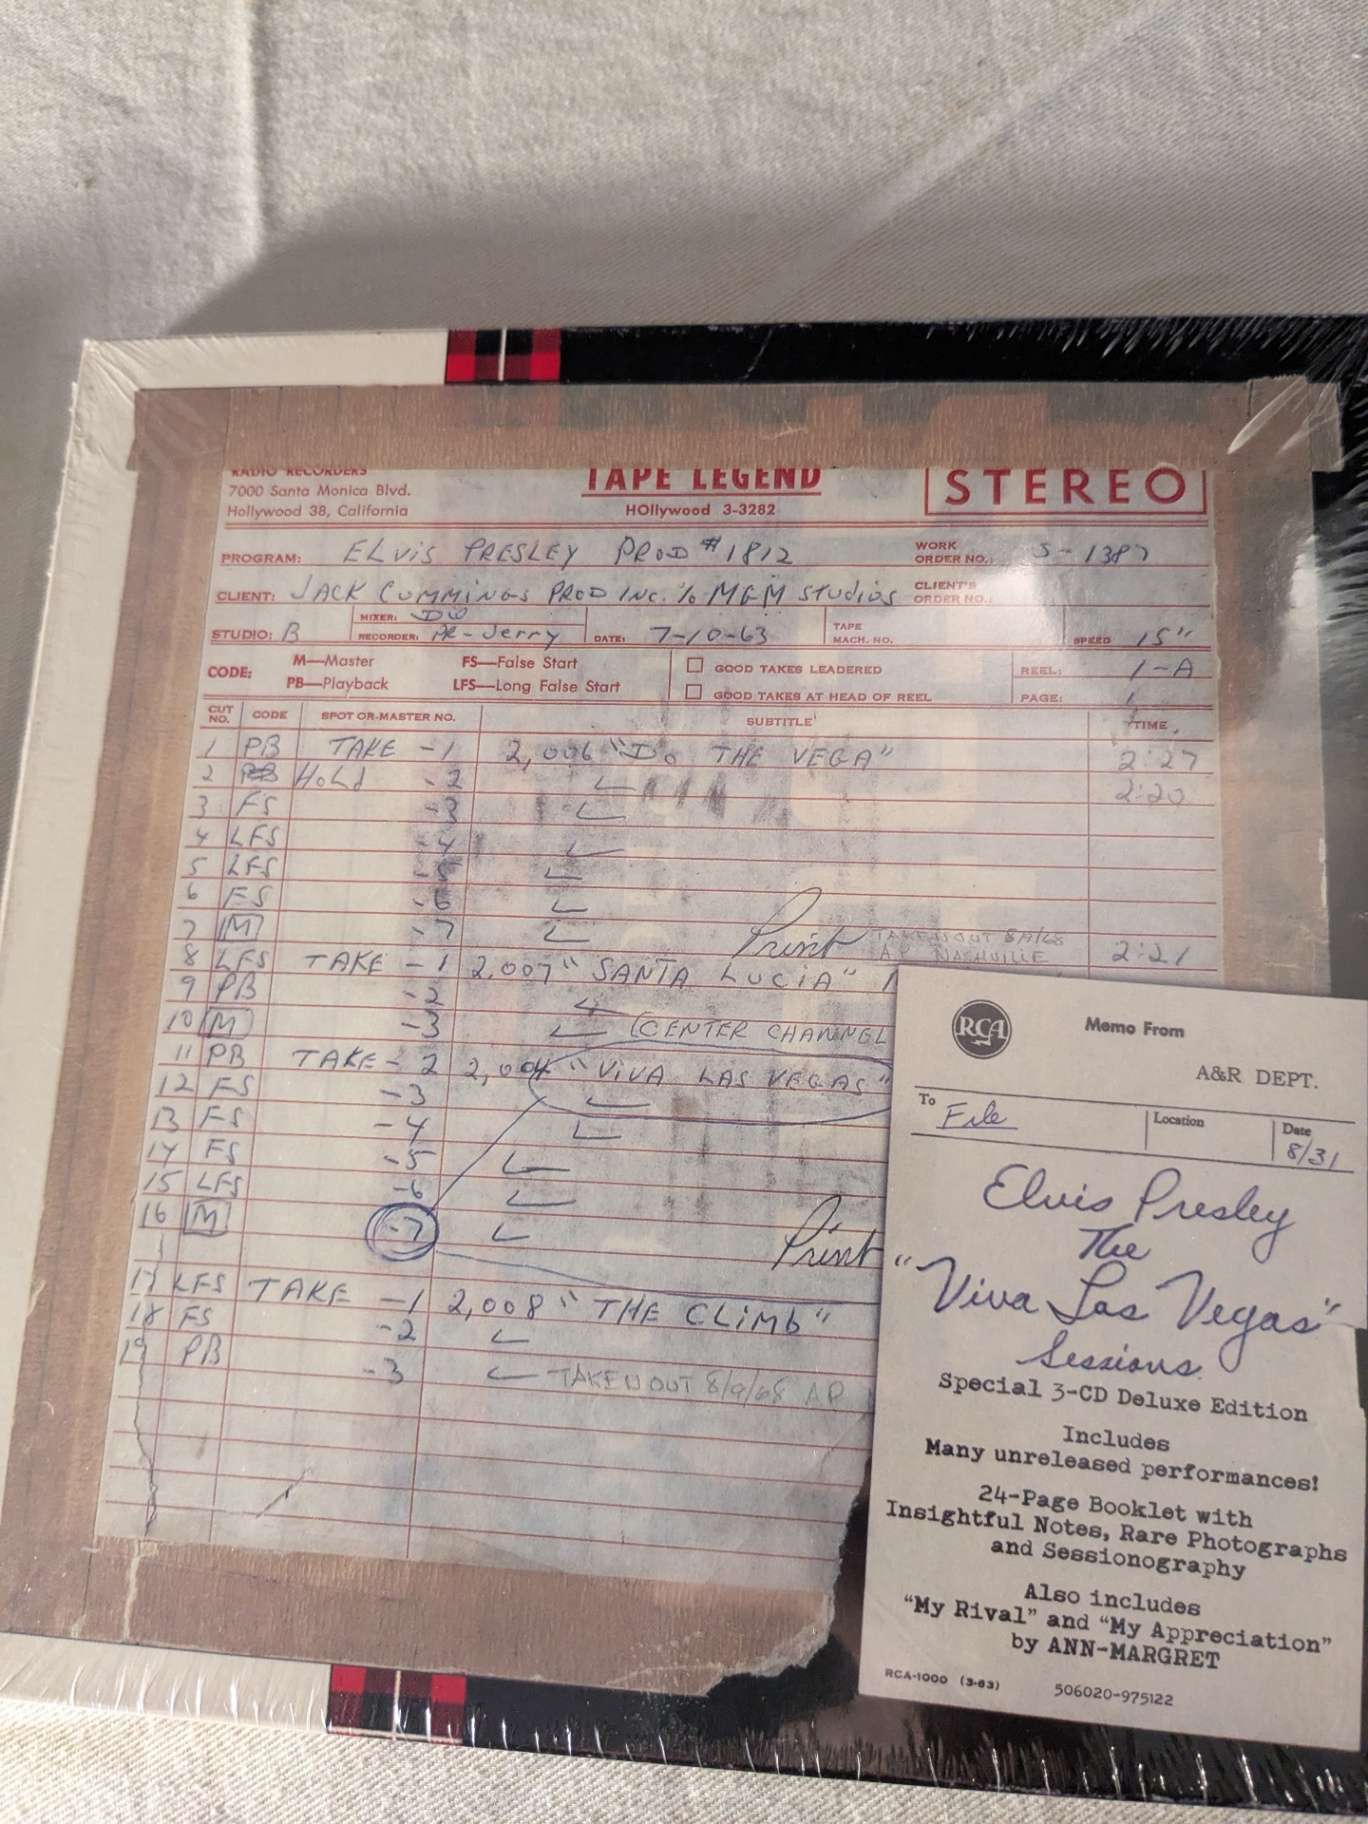 RADIO RECORDERS
7000 Santa Monica Blvd.
Hollywood 38, California
TAPE LEGEND
HOllywood 3-3282
STEREO
PROGRAM: ELVIS PRESLEY PROD #1812
WORK ORDER NO.: S-1387
CLIENT: JACK CUMMINGS PROD INC. % MGM STUDIOS
CLIENT'S ORDER NO.:
STUDIO: B
MIXER: DW
RECORDER: Jerry
DATE: 7-10-63
TAPE MACH. NO.
SPEED 15"
CODE:
M—Master FS—False Start
PB—Playback LFS—Long False Start
GOOD TAKES LEADERED
GOOD TAKES AT HEAD OF REEL
REEL: 1-A
PAGE: 1
CUT NO. CODE SPOT OR MASTER NO. SUBTITLE TIME
1 PB TAKE -1 2,006 "DO THE VEGA" 2:27
2 PB HOLD -2 ✓ 2:20
3 FS -3 ✓
4 LFS -4 ✓
5 LFS -5 ✓
6 FS -6 ✓
7 M -7 ✓ Print TAKEN OUT 8/9/68 A.P. NASHVILLE 2:21
8 LFS TAKE -1 2,007 "SANTA LUCIA"
9 PB -2 ✓
10 M -3 ✓ (CENTER CHANNEL
11 PB TAKE -2 2,004 "VIVA LAS VEGAS"
12 FS -3 ✓
13 FS -4 ✓
14 FS -5 ✓
15 LFS -6 ✓
16 M -7 ✓ Print
17 LFS TAKE -1 2,008 "THE CLIMB"
18 FS -2 ✓
19 PB -3 ✓ TAKEN OUT 8/9/68 AP
RCA
Memo From
A&R DEPT.
To File
Location
Date 8/31
Elvis Presley
The
"Viva Las Vegas"
Sessions
Special 3-CD Deluxe Edition
Includes
Many unreleased performances!
24-Page Booklet with
Insightful Notes, Rare Photographs
and Sessionography
Also includes
"My Rival" and "My Appreciation"
by ANN-MARGRET
RCA-1000 (3-63)
506020-975122